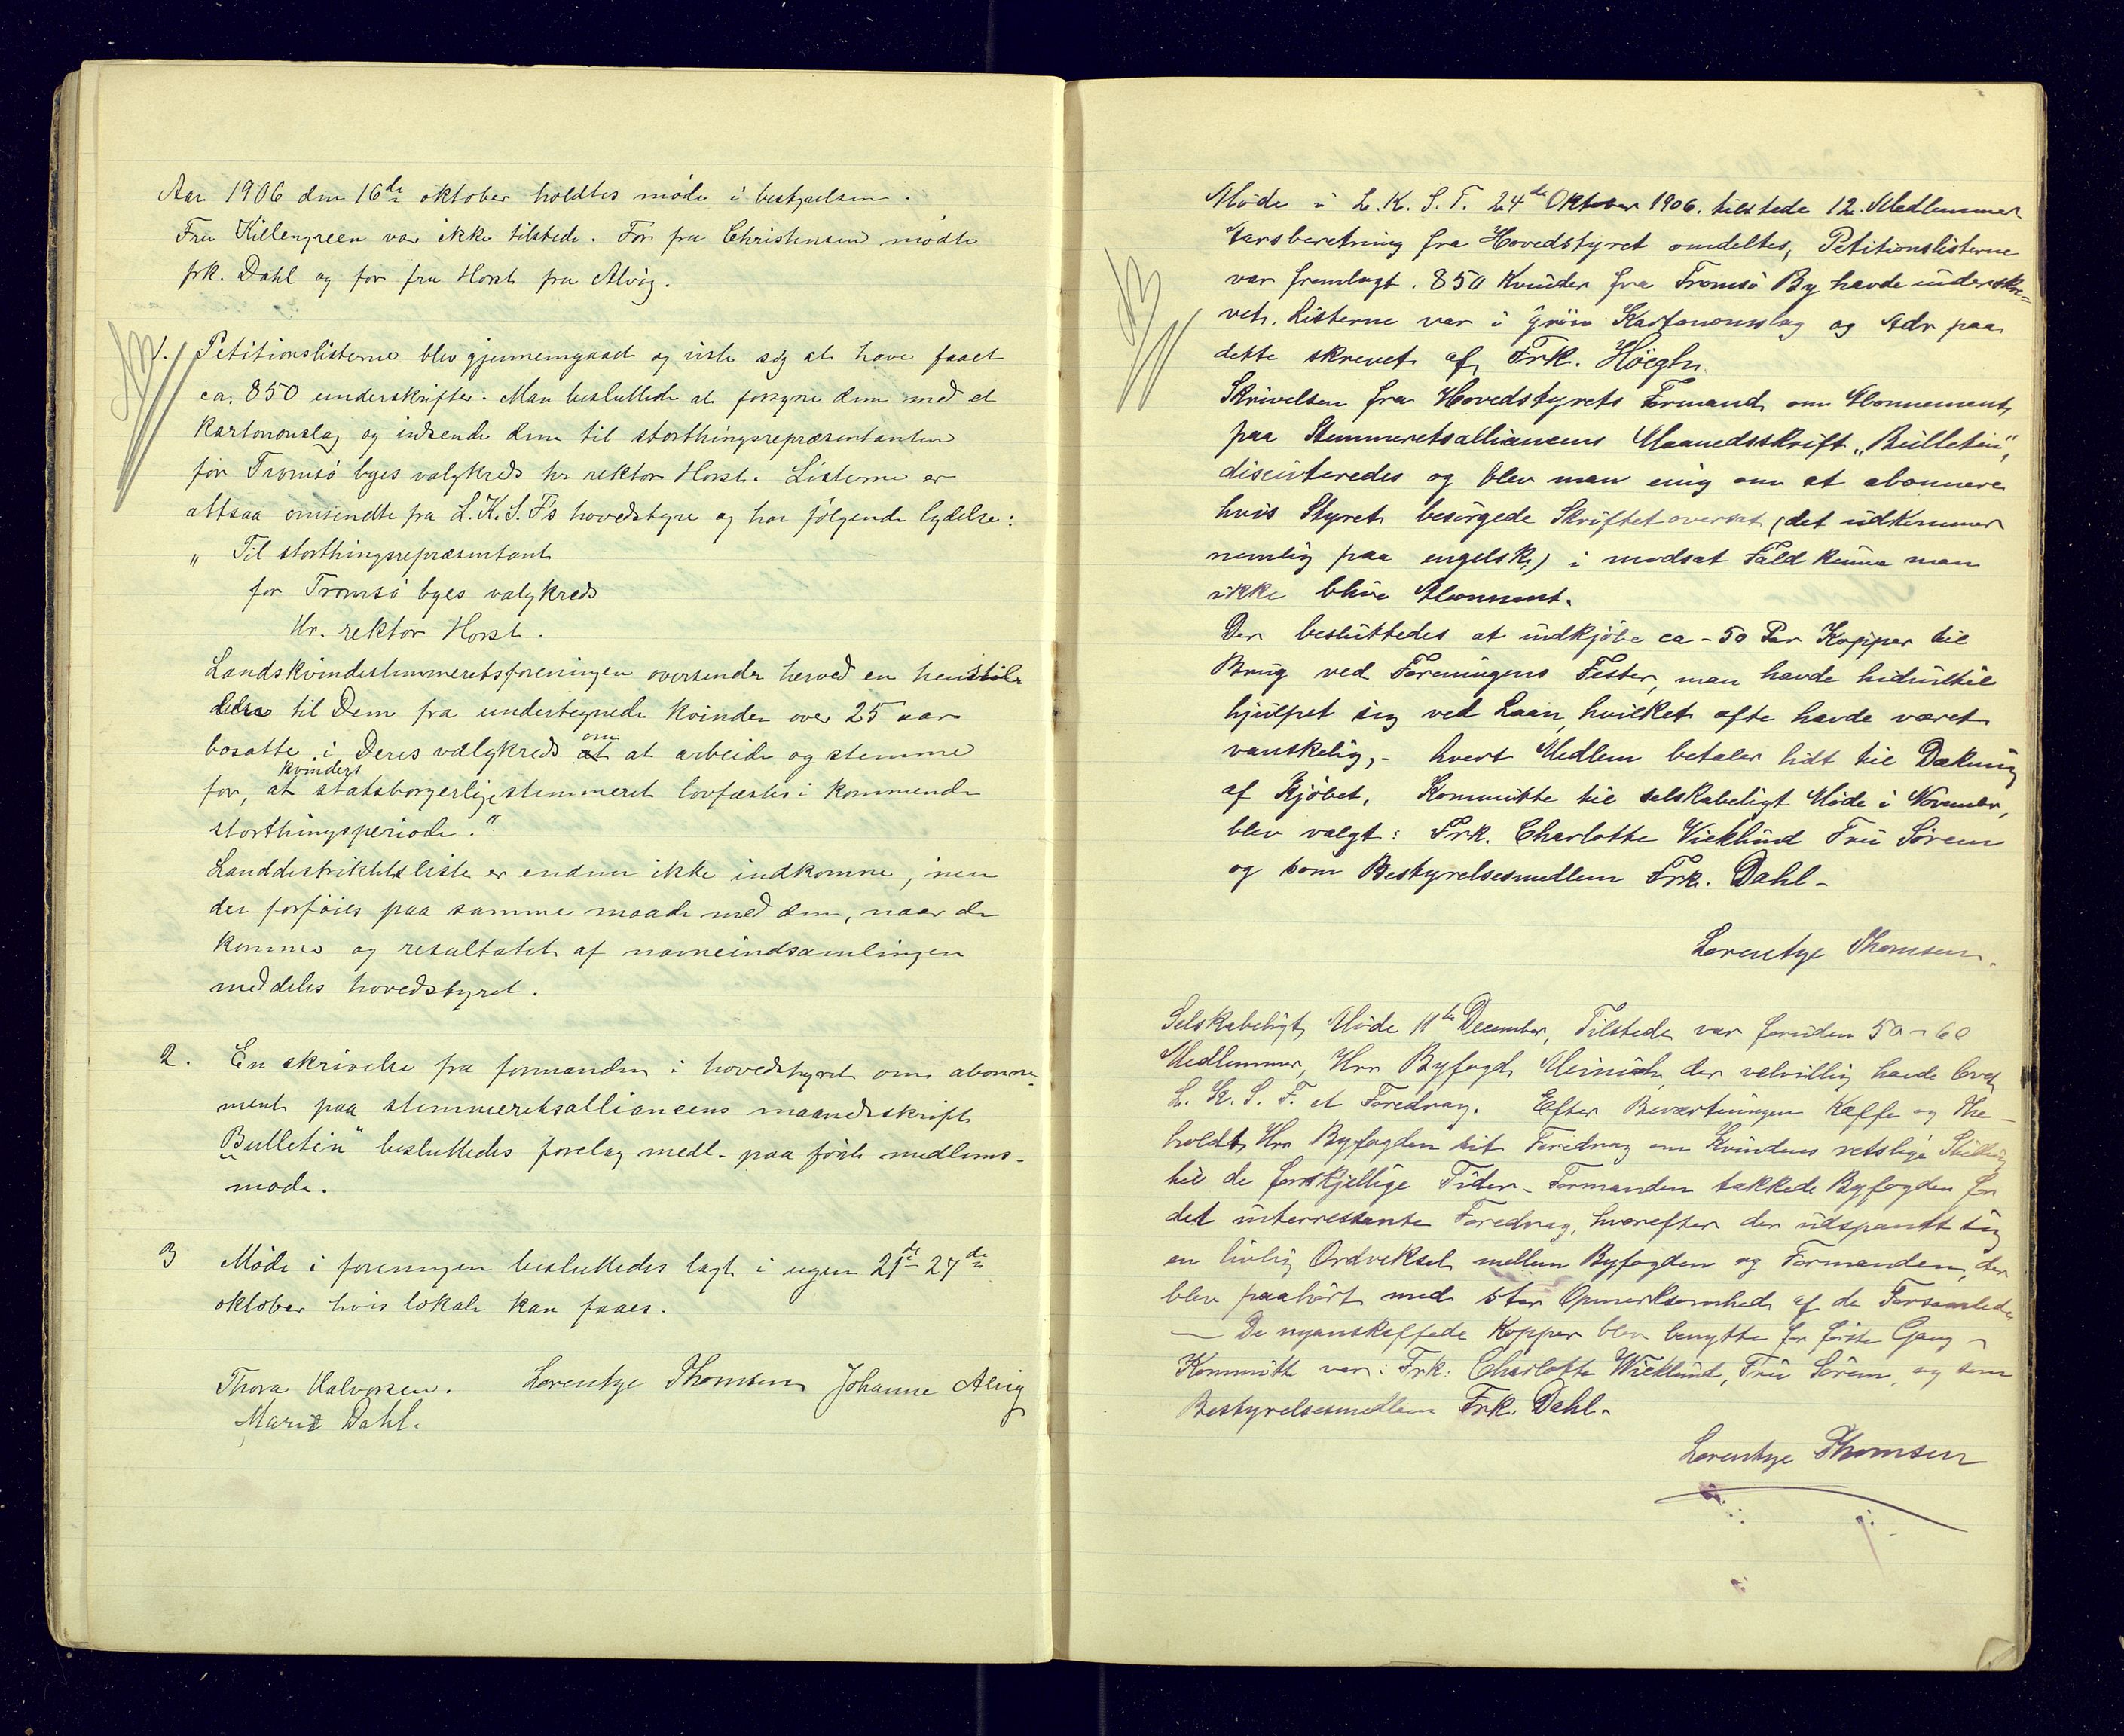 Aar 1906 den 16de oktober holdtes møde i bestyrelsen.
Fru Killengreen var ikke tilstede. For fru Christensen mødte
frk. Dahl og for fru Horst fru Alvig.
NB
1. Petitionslisterne blev gjennemgaaet og viste sig at have faaet
ca. 850 underskrifter. Man besluttede at forsyne dem med et
kartonomslag og indsende dem til storthingsrepræsentanten
for Tromsö byes valgkreds hr rektor Horst. Listerne er
altsaa omsendte fra L.K.S.F's hovedstyre og har følgende lydelse:
„ Til storthingsrepræsentant
for Tromsö byes valgkreds
Hr. rektor Horst.
Landskvindestemmeretsforeningen oversender herved en henstil-
lelse til Dem fra undertegnede kvinder over 25 aar
bosatte i Deres valgkreds om at arbeide og stemme
for, at kvinders statsborgerlige stemmeret lovfæstes i kommende
storthingsperiode."
Landdistriktets liste er endnu ikke indkomne, men
der forföies paa samme maade med dem, naar de
kommer og resultatet af navneindsamlingen
meddeles hovedstyret.
2. En skrivelse fra formanden i hovedstyret om abonne-
ment paa stemmeretsalliancens maanedsskrift
„Bulletin" besluttedes forelagt medl. paa förste medlems-
møde.
3 Møde i foreningen besluttedes lagt i ugen 21de-27de
oktober hvis lokale kan faaes.
Thora Halvorsen. Lorentze Thomsen Johanne Alvig
Marie Dahl.
Møde i L.K.S.F. 24de Oktober 1906. tilstede 12. Medlemmer
Aarsberetning fra Hovedstyret omdeltes, Petitionslisterne
NB
var fremlagt. 850 Kvinder fra Tromsö By havde underskre-
vet. Listerne var i grön Kartonomslag og Adr paa
dette skrevet af Frk. Höegh.
Skrivelsen fra Hovedstyrets Formand om Abonnement
paa Stemmeretsalliancens Maanedsskrift „Bulletin",
discuteredes og blev man enig om at abonnere
hvis Styret besörgede Skriftet oversat (det udkommer
nemlig paa engelsk) i modsat Fald kunne man
ikke blive Abonnent.
Der besluttedes at indkjöbe ca - 50 Par Kopper til
Brug ved Foreningens Fester, man havde hidindtil
hjulpet sig ved Laan, hvilket ofte havde været
vanskelig, - hvert Medlem betaler lidt til Dækning
af Kjöbet. Kommitte til selskabeligt Møde i November,
blev valgt: Frk. Charlotte Wicklund Fru Sörem
og som Bestyrelsesmedlem Frk. Dahl -
Lorentze Thomsen.
Selskabeligt Møde 11te December, Tilstede var foruden 50-60
Medlemmer, Hrr Byfogd Meinich, der velvillig havde lovet
L.K.S.F. et Foredrag. Efter Beværtningen Kaffe og The -
holdt Hrr Byfogden sit Foredrag om Kvindens retslige Stilling
til de forskjellige Tider - Formanden takkede Byfogden for
det interressante Foredrag, hvorefter der udspandt sig
en livlig Ordveksel mellem Byfogden og Formanden, der
blev paahört med stor Opmerksomhed af de Forsamlede
— De nyanskaffede Kopper blev benyttet for förste Gang -
Kommitte var: Frk: Charlotte Wicklund, Fru Sörem, og som
Bestyrelsesmedlem Frk. Dahl -
Lorentze Thomsen